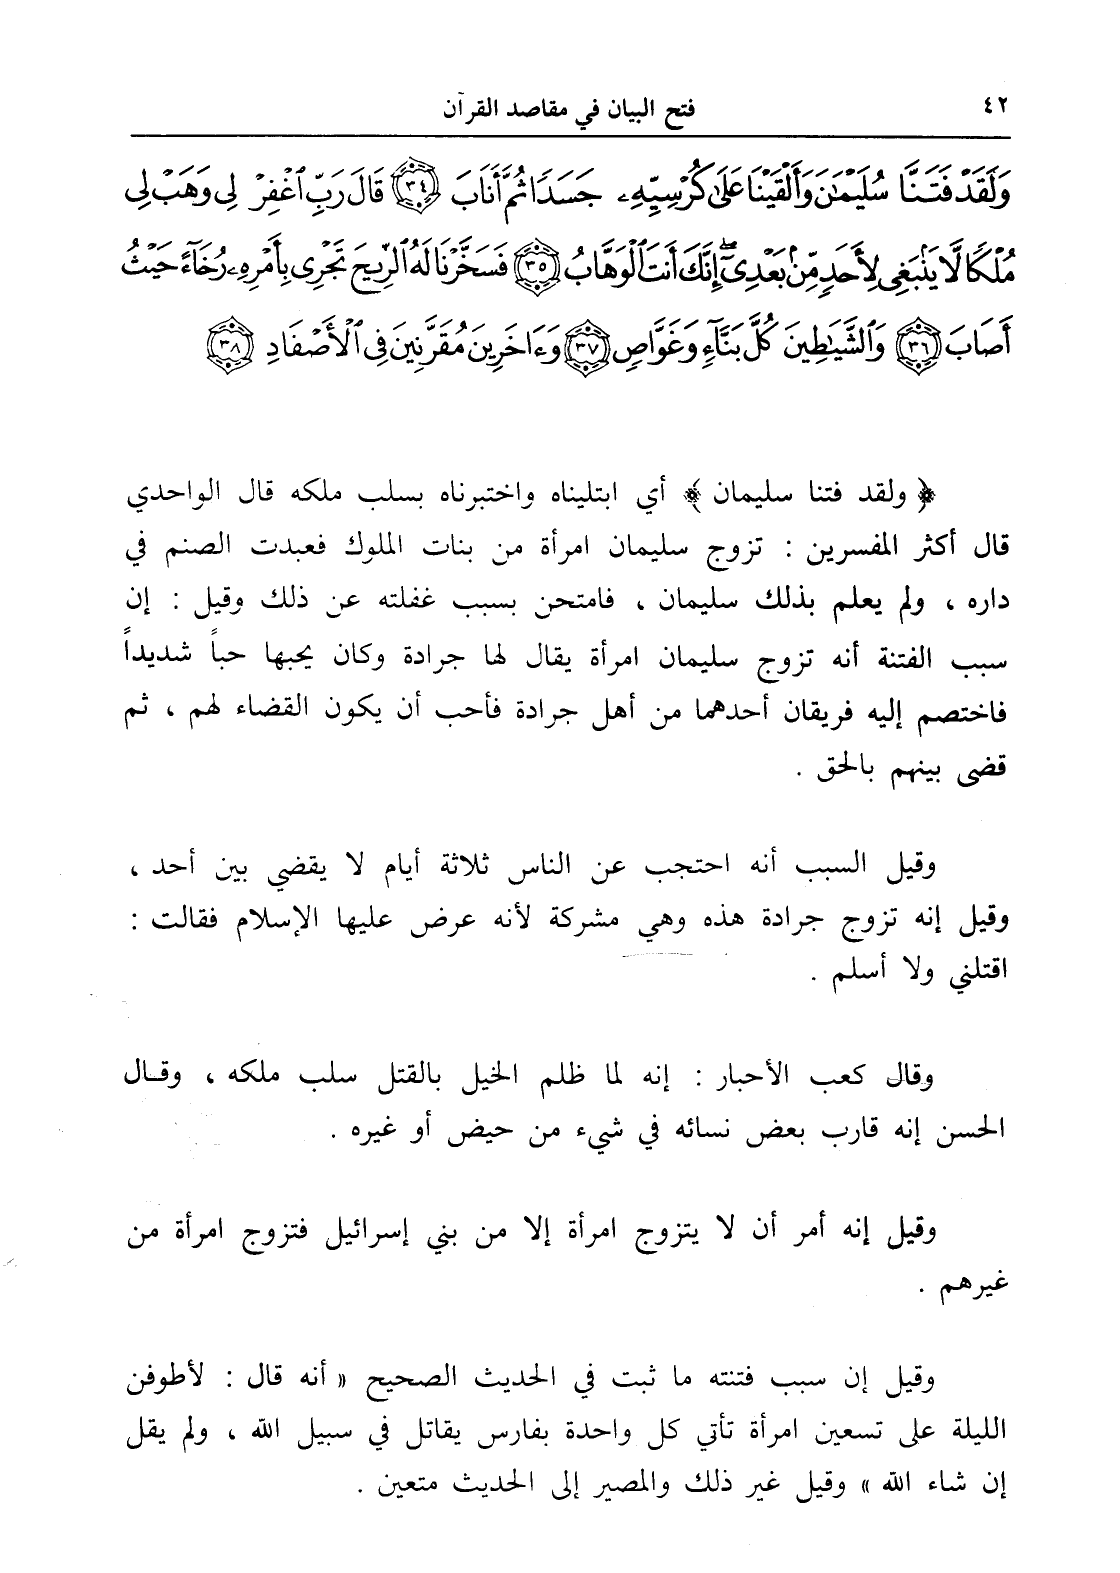 ٤٢
فتح البيان في مقاصد القرآن
وَلَقَدْ فَتَنَّا سُلَيْمَٰنَ وَأَلْقَيْنَا عَلَىٰ كُرْسِيِّهِۦ جَسَدًا ثُمَّ أَنَابَ ﴿٣٤﴾ قَالَ رَبِّ ٱغْفِرْ لِى وَهَبْ لِى
مُلْكًا لَّا يَنۢبَغِى لِأَحَدٍ مِّنۢ بَعْدِىٓ ۖ إِنَّكَ أَنتَ ٱلْوَهَّابُ ﴿٣٥﴾ فَسَخَّرْنَا لَهُ ٱلرِّيحَ تَجْرِى بِأَمْرِهِۦ رُخَآءً حَيْثُ
أَصَابَ ﴿٣٦﴾ وَٱلشَّيَٰطِينَ كُلَّ بَنَّآءٍ وَغَوَّاصٍ ﴿٣٧﴾ وَءَاخَرِينَ مُقَرَّنِينَ فِى ٱلْأَصْفَادِ ﴿٣٨﴾
﴿ ولقد فتنا سليمان ﴾ أي ابتليناه واختبرناه بسلب ملكه قال الواحدي
قال أكثر المفسرين : تزوج سليمان امرأة من بنات الملوك فعبدت الصنم في
داره ، ولم يعلم بذلك سليمان ، فامتحن بسبب غفلته عن ذلك وقيل : إن
سبب الفتنة أنه تزوج سليمان امرأة يقال لها جرادة وكان يحبها حباً شديداً
فاختصم إليه فريقان أحدهما من أهل جرادة فأحب أن يكون القضاء لهم ، ثم
قضى بينهم بالحق .
وقيل السبب أنه احتجب عن الناس ثلاثة أيام لا يقضي بين أحد ،
وقيل إنه تزوج جرادة هذه وهي مشركة لأنه عرض عليها الإسلام فقالت :
اقتلني ولا أسلم .
وقال كعب الأحبار : إنه لما ظلم الخيل بالقتل سلب ملكه ، وقال
الحسن إنه قارب بعض نسائه في شيء من حيض أو غيره .
وقيل إنه أمر أن لا يتزوج امرأة إلا من بني إسرائيل فتزوج امرأة من
غيرهم .
وقيل إن سبب فتنته ما ثبت في الحديث الصحيح « أنه قال : لأطوفن
الليلة على تسعين امرأة تأتي كل واحدة بفارس يقاتل في سبيل الله ، ولم يقل
إن شاء الله » وقيل غير ذلك والمصير إلى الحديث متعين .